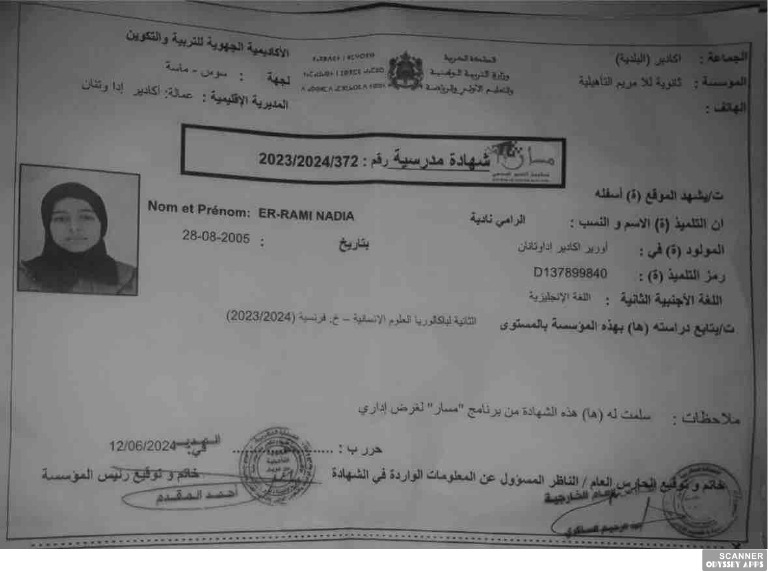 الجماعة : اكادير (البلدية)
المؤسسة : ثانوية للا مريم التأهيلية
الهاتف :
المملكة المغربية
وزارة التربية الوطنية
والتعليم الأولي والرياضة
الأكاديمية الجهوية للتربية والتكوين
لجهة : سوس - ماسة
المديرية الإقليمية : عمالة: أكادير إدا وتنان
مسار
شهادة مدرسية رقم : 2023/2024/372
ت/يشهد الموقع (ة) أسفله
ان التلميذ (ة) الاسم و النسب : الرامي نادية
Nom et Prénom: ER-RAMI NADIA
المولود (ة) في : أورير اكادير اداوتانان بتاريخ : 28-08-2005
رمز التلميذ (ة) : D137899840
اللغة الأجنبية الثانية : اللغة الإنجليزية
ت/يتابع دراسته (ها) بهذه المؤسسة بالمستوى الثانية لباكالوريا العلوم الانسانية – خ. فرنسية (2023/2024)
ملاحظات : سلمت له (ها) هذه الشهادة من برنامج "مسار" لغرض إداري
حرر ب : .................. في: 12/06/2024
المدير
خاتم و توقيع الحارس العام / الناظر المسؤول عن المعلومات الواردة في الشهادة
خاتم و توقيع رئيس المؤسسة
احمد المقدم
SCANNER
ODYSSEY APPS